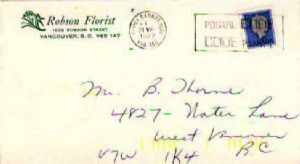 Robson Florist
1038 ROBSON STREET
VANCOUVER, B.C. V6E 1A7
POSTAL CODE
CODE
Mr. B. Thorne
4827 - Water Lane
West
BC
V7W 1K4